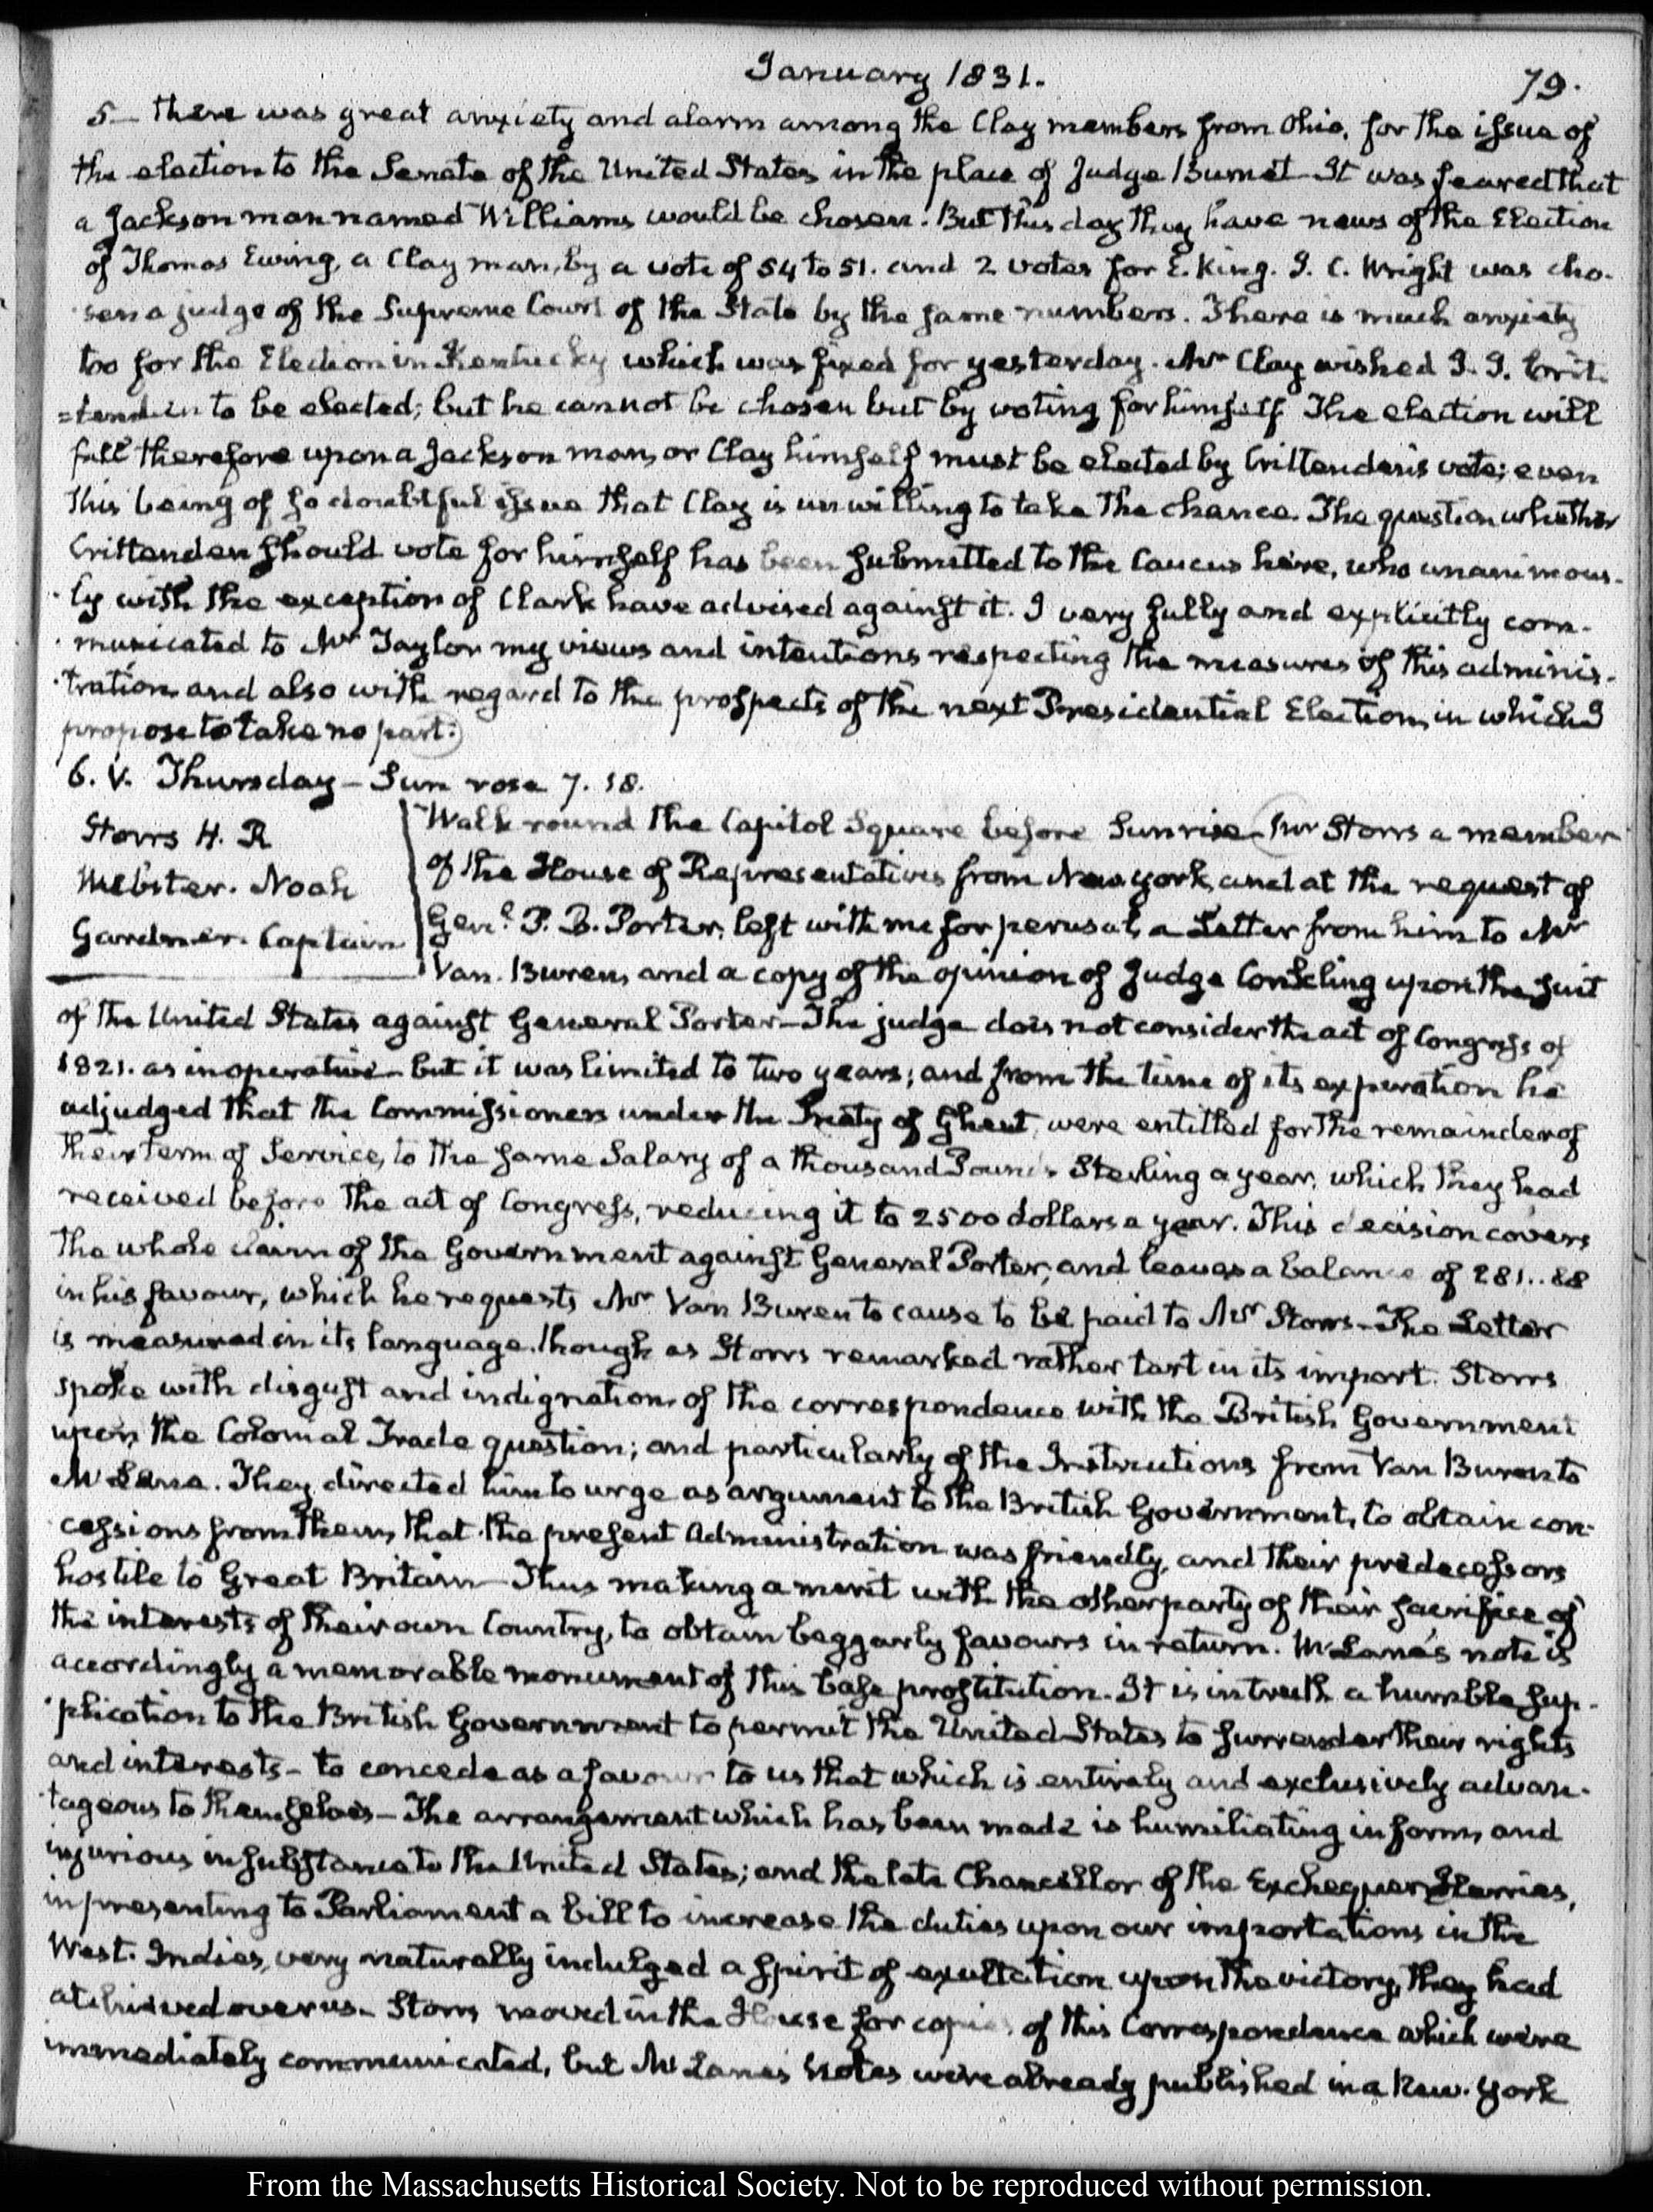 January 1831.
79.
5— There was great anxiety and alarm among the Clay members from Ohio, for the issue of
the election to the Senate of the United States in the place of Judge Burnet— It was feared that
a Jackson man named Williams would be chosen. But this day they have news of the Election
of Thomas Ewing, a Clay man, by a vote of 54 to 51. and 2 votes for E. King. J. C. Wright was cho-
sen a judge of the Supreme Court of the State by the same numbers. There is much anxiety
too for the Election in Kentucky which was fixed for yesterday. Mr Clay wished J. J. Crit-
=tenden to be elected; but he cannot be chosen but by voting for himself The election will
fall therefore upon a Jackson man, or Clay himself must be elected by Crittenden's vote; even
this being of so doubtful issue that Clay is unwilling to take the chance. The question whether
Crittenden should vote for himself has been submitted to the Caucus here, who unanimous-
-ly with the exception of Clark have advised against it. I very fully and explicitly com-
-municated to Mr Taylor my views and intentions respecting the measures of this adminis-
-tration and also with regard to the prospects of the next Presidential Election, in which I
propose to take no part.
6. V. Thursday— Sun rose 7. 18.
Storrs H. R
Webster. Noah
Gardner. Captain
Walk round the Capitol Square before Sunrise— Mr Storrs a member
of the House of Representatives from New York, and at the request of
Genl. P. B. Porter, left with me for perusal, a Letter from him to Mr
Van. Buren, and a copy of the opinion of Judge Conkling upon the suit
of the United States against General Porter— The judge does not consider the act of Congress of
1821. as inoperative— but it was limited to two years; and from the time of its expiration he
adjudged that the Commissioners under the Treaty of Ghent, were entitled for the remainder of
their term of Service, to the same Salary of a thousand Pounds Sterling a year, which they had
received before the act of Congress, reducing it to 2500 dollars a year. This decision covers
the whole claim of the Government against General Porter, and leaves a balance of 281..88
in his favour, which he requests Mr Van Buren to cause to be paid to Mr Storrs— The Letter
is measured in its language, though as Storrs remarked rather tart in its import. Storrs
spoke with disgust and indignation of the correspondence with the British Government
upon the Colonial Trade question; and particularly of the Instructions from Van Buren to
McLane. They directed him to urge as argument to the British Government, to obtain con-
cessions from them, that the present Administration was friendly, and their predecessors
hostile to Great Britain— Thus making a merit with the other party of their sacrifice of
the interests of their own Country, to obtain beggarly favours in return. McLane's note is
accordingly a memorable monument of this base prostitution. It is in truth a humble sup-
-plication to the British Government to permit the United States to surrender their rights
and interests— to concede as a favour to us that which is entirely and exclusively advan-
-tageous to themselves— The arrangement which has been made is humiliating in form, and
injurious in substance to the United States; and the late Chancellor of the Exchequer Herries,
in presenting to Parliament a bill to increase the duties upon our importations in the
West. Indies, very naturally indulged a spirit of exultation upon the victory, they had
atchieved over us— Storrs moved in the House for copies of this Correspondence which were
immediately communicated, but McLane's Notes were already published in a New. York
From the Massachusetts Historical Society. Not to be reproduced without permission.